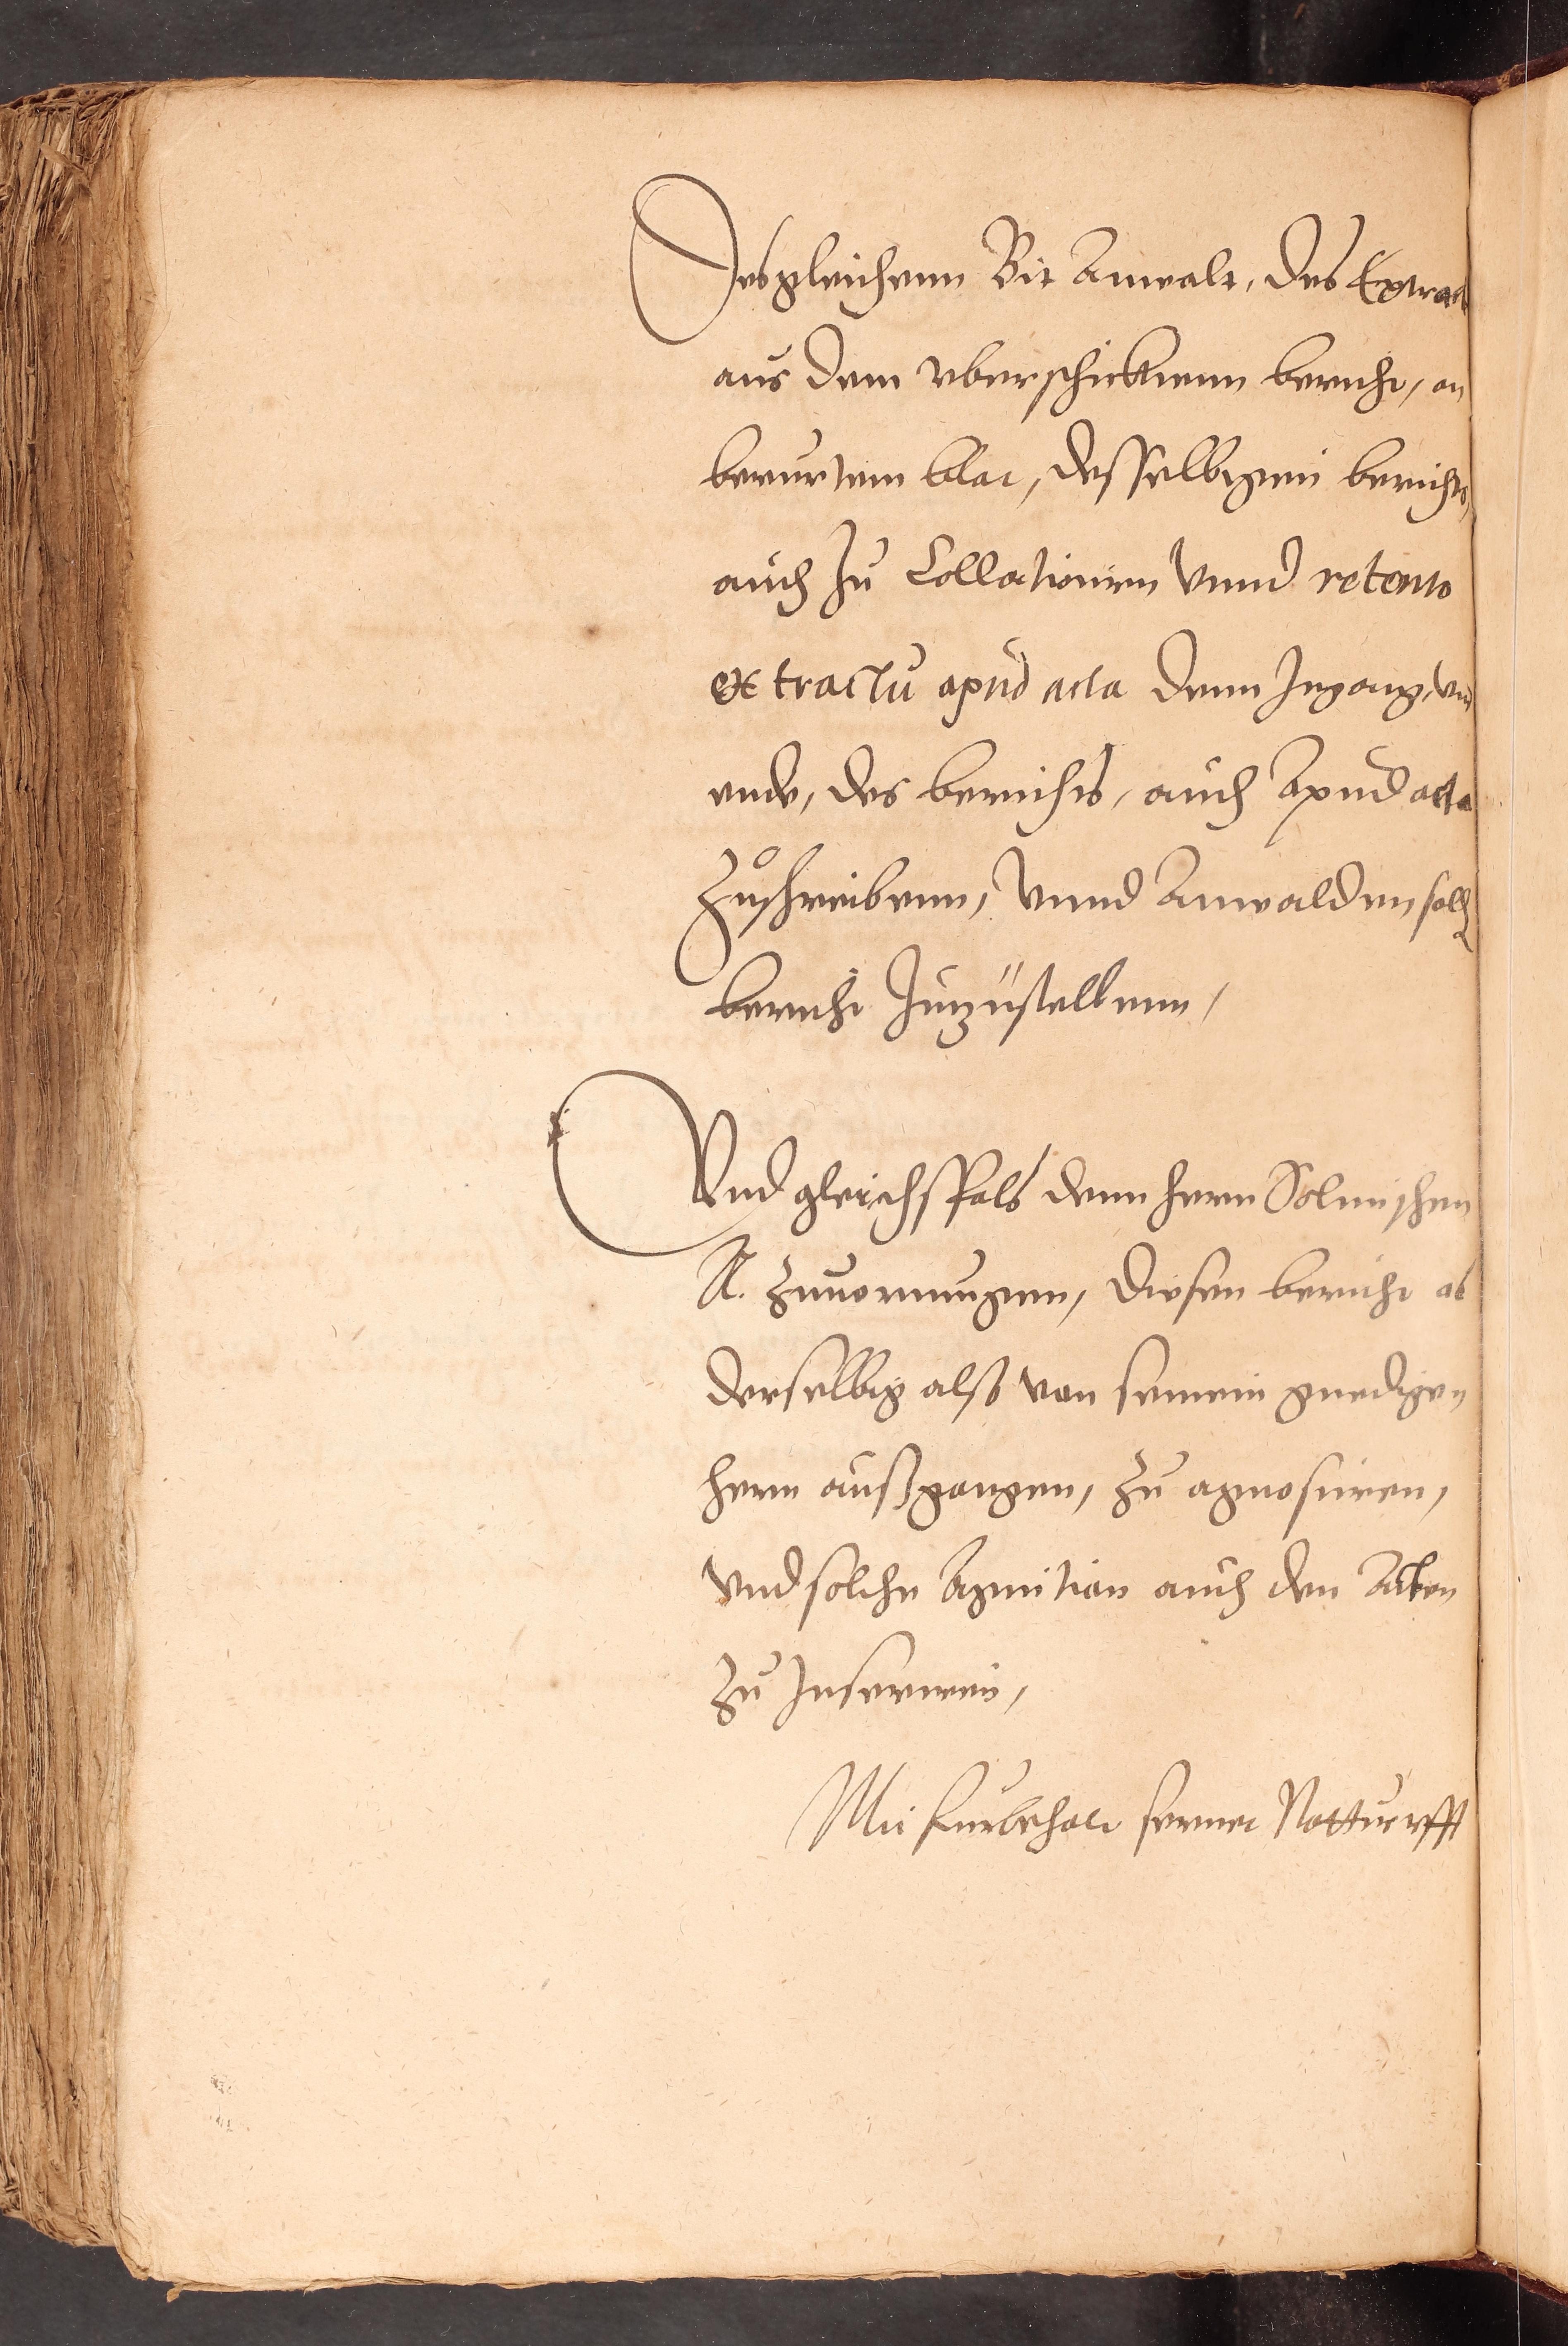 Desgleichenn Bit Anwalt, des Extract
aus dem vberschicktenn bericht, an
berurtem blat, desselbigenn berichts,
auch zu Collationirn vnnd retento
extractu apud acta denn Ingang, vnd
ende, des berichts, auch Apud acta
Zuschreibenn, Vnnd Anwalden solch
bericht Inzustellenn,
Vnd gleichsfals denn hern Solmischen
A. Zuuermugenn, diesen bericht als
derselbig alß von seinem gnedigen
hern außgangen, zu agnosciren,
vnd solche Agnition auch den Acten
zu Inserirenn,
Mit furbehalt ferner Notturfft